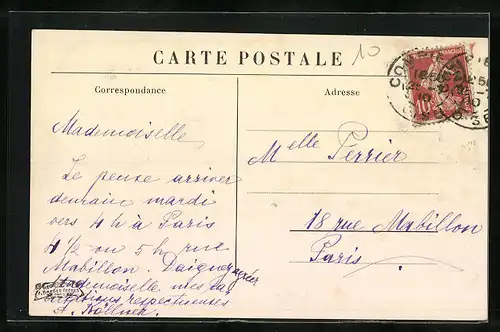 10
CARTE POSTALE
Correspondance
Adresse
Mademoiselle,
Je pense arriver
demain mardi
vers 4h à Paris
4 1/2 ou 5h rue
Mabillon. Daignez agréer
Mademoiselle mes sa
respectueuses
J. Köllner
Melle Perrier
18 rue Mabillon
Paris
10